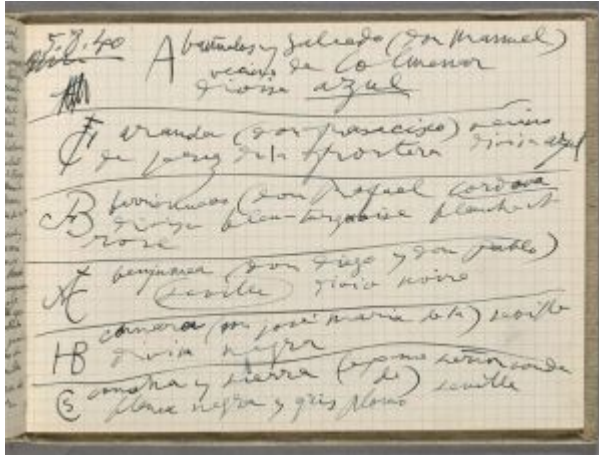 5.8.40
A bañuelos y Salcedo (don Manuel)
vecino de Colmenar
divisa azul
aranda (don francisco) vecino
de jerez de la frontera divisa azul
B barrionuevo (don Rafael cordova
divisa bleu-turquoise blanche et
rose
benjumea (don diego y don pablo)
sevilla divisa noire
HB camara (don josé maria de la) sevilla
divisa negra
concha y sierra (señor conde
de) sevilla
blanca negra y gris plomo